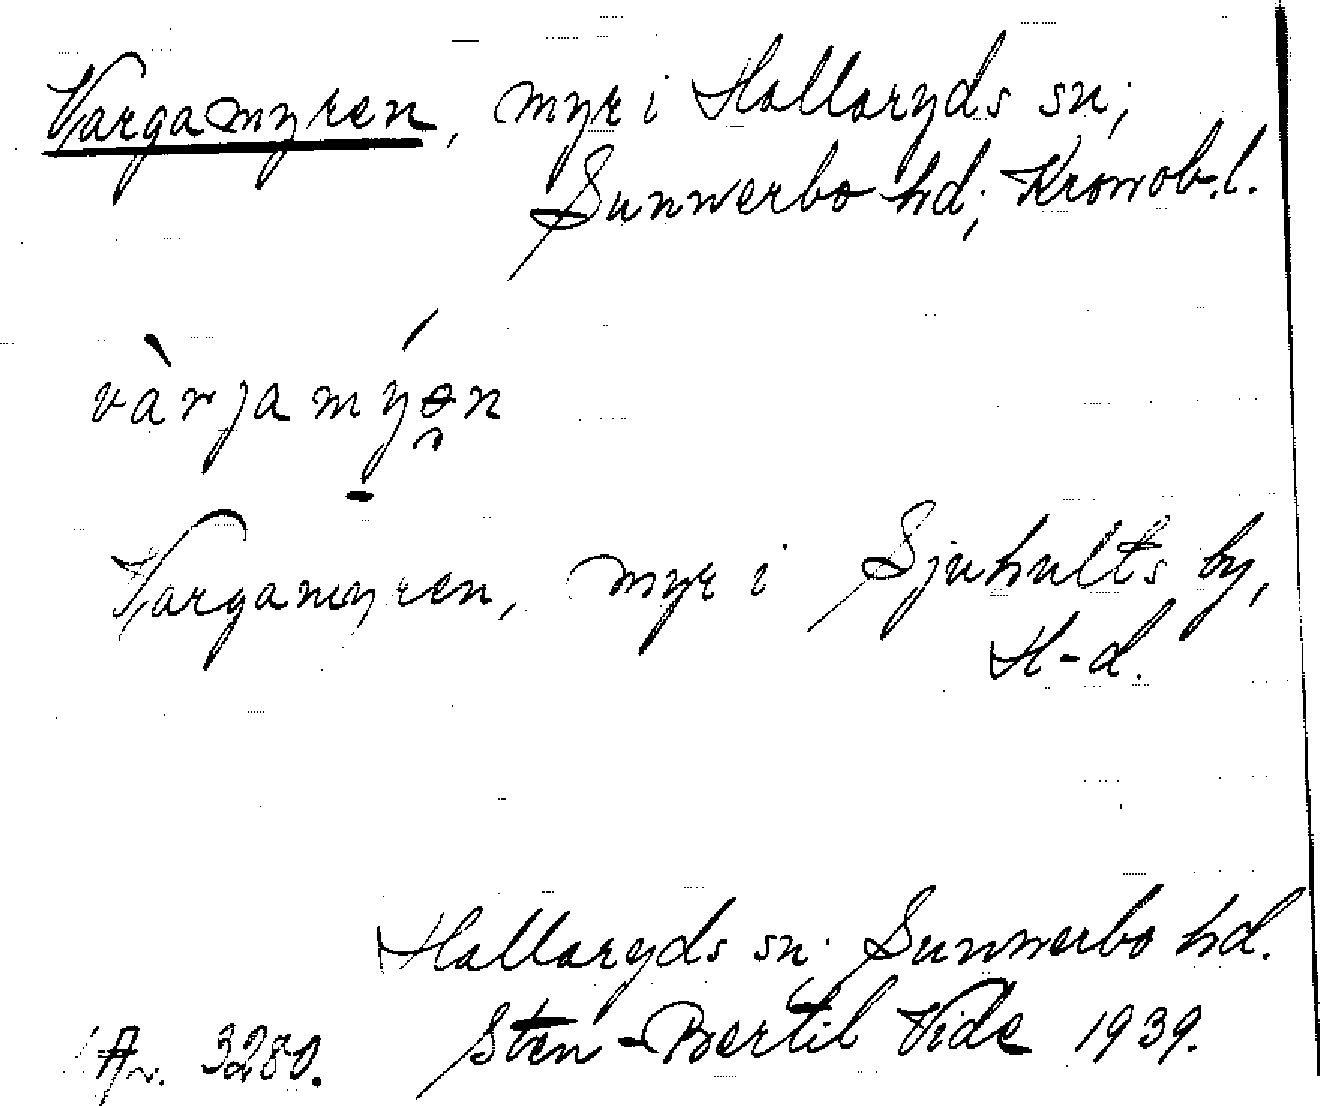 Vargamyren, myr i Hallaryds sn;
Sunnerbo hd; Kronob.l.
vàrjamýən
Vargamyren, myr i Sjuhults by,
H-d.
Hallaryds sn. Sunnerbo hd.
3280. Sten-Bertil Vide 1939.